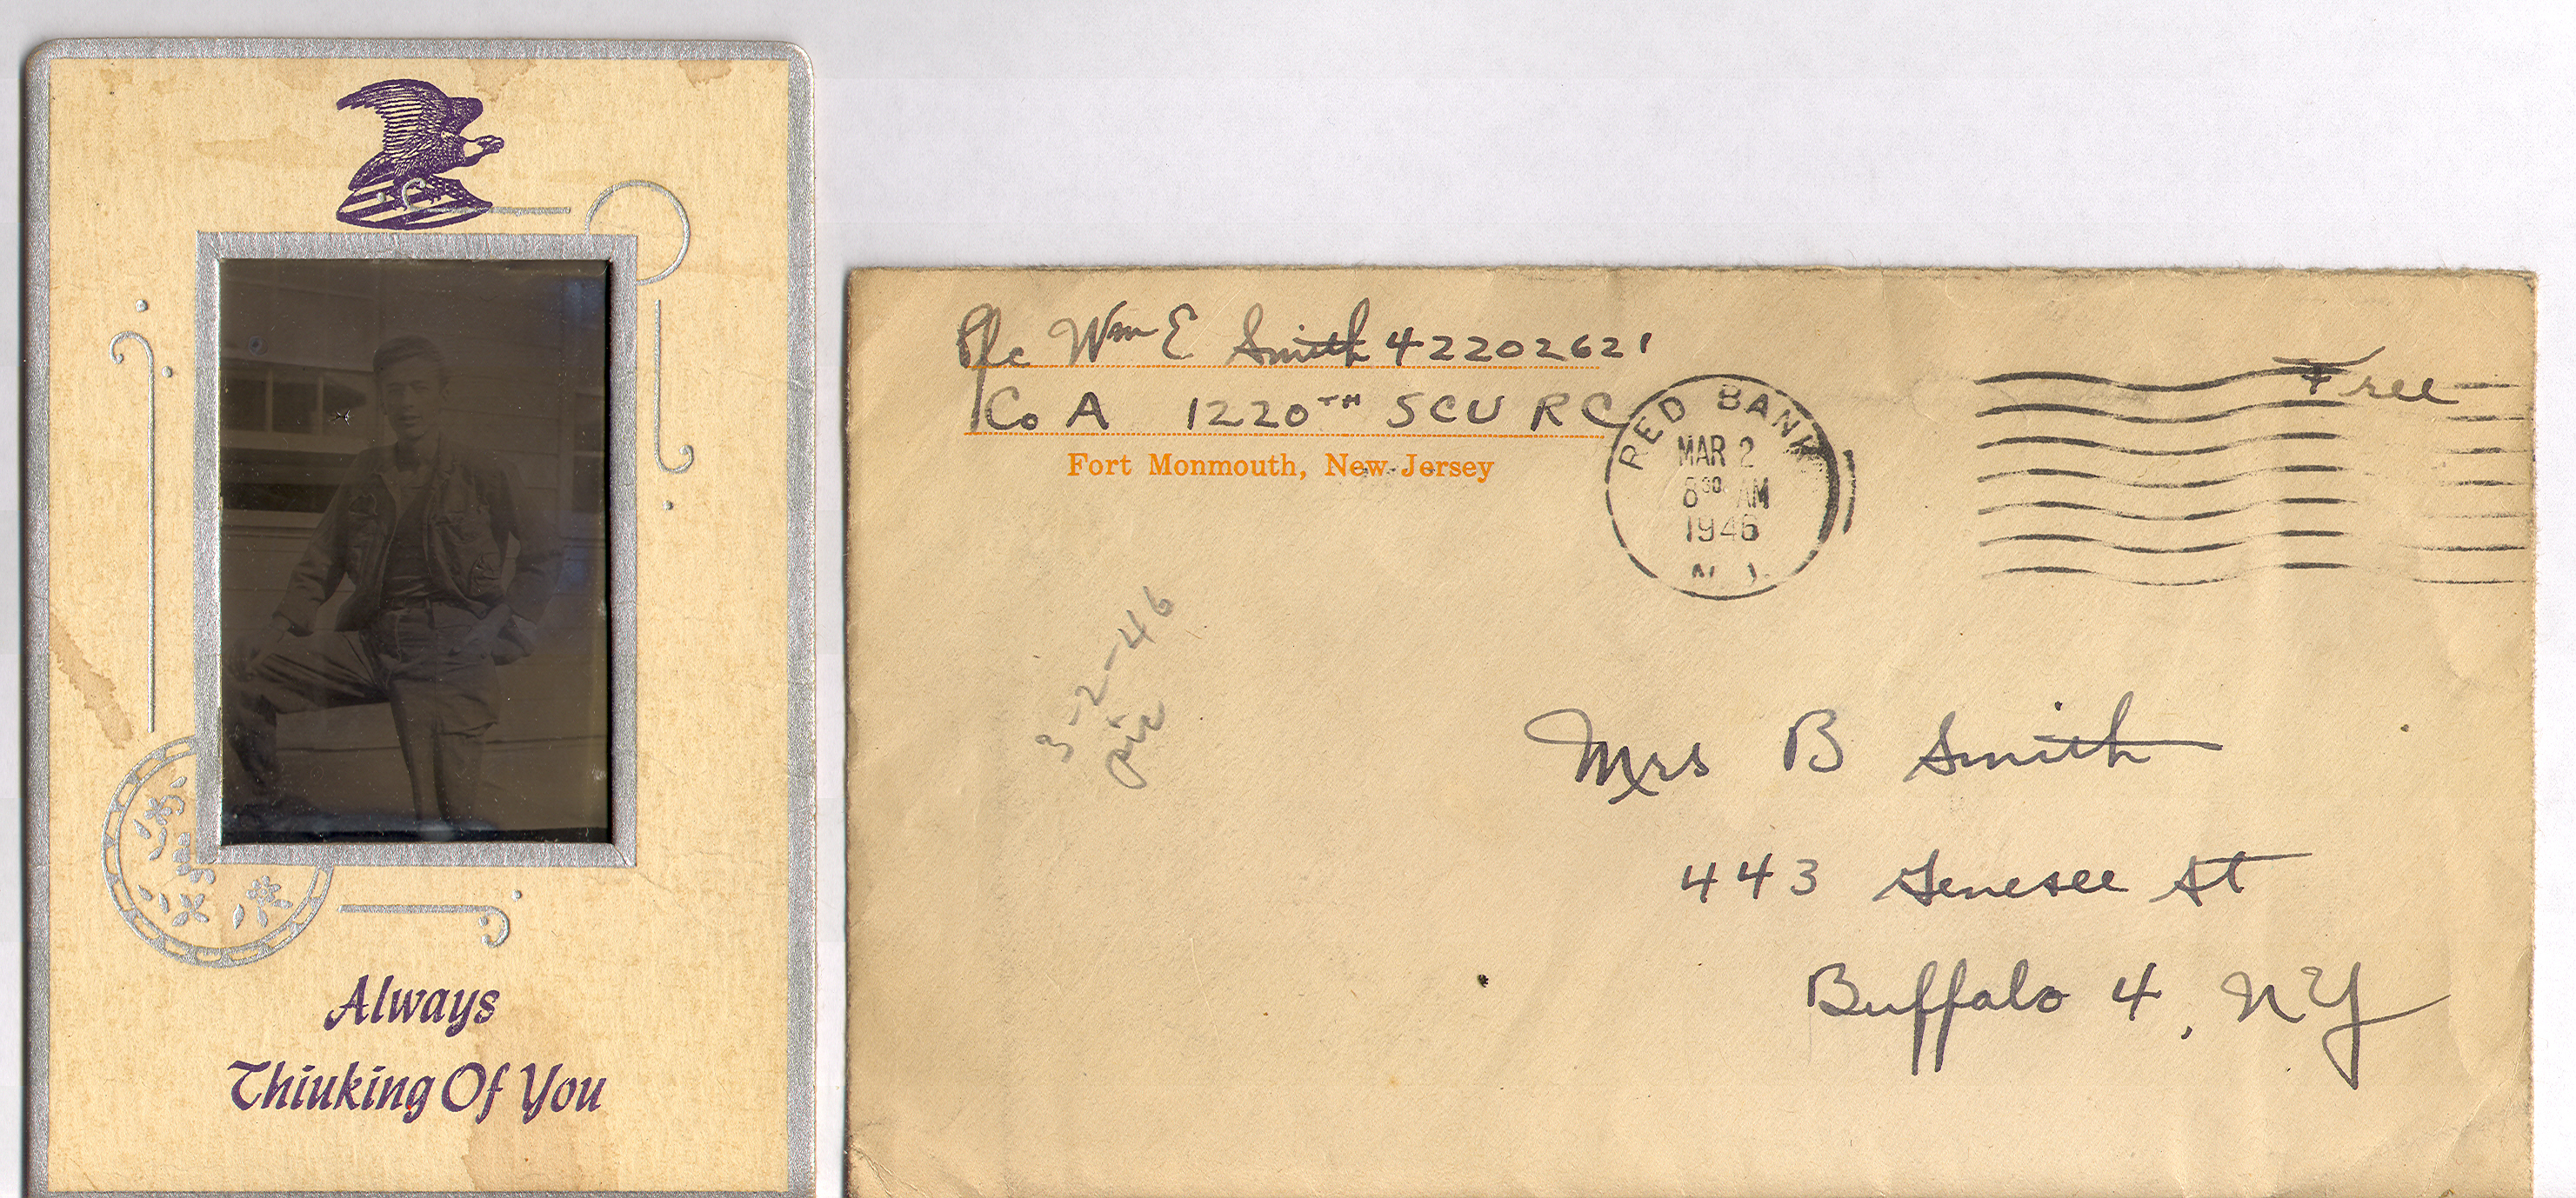 Always
Thiuking Of You
Pfc Wm E Smith 42202621
Co A 1220TH SCU RC
Fort Monmouth, New Jersey
RED BANK
MAR 2
8 30 AM
1946
N.J.
Free
3-2-46
pic
Mrs B Smith
443 Genesee St
Buffalo 4, NY